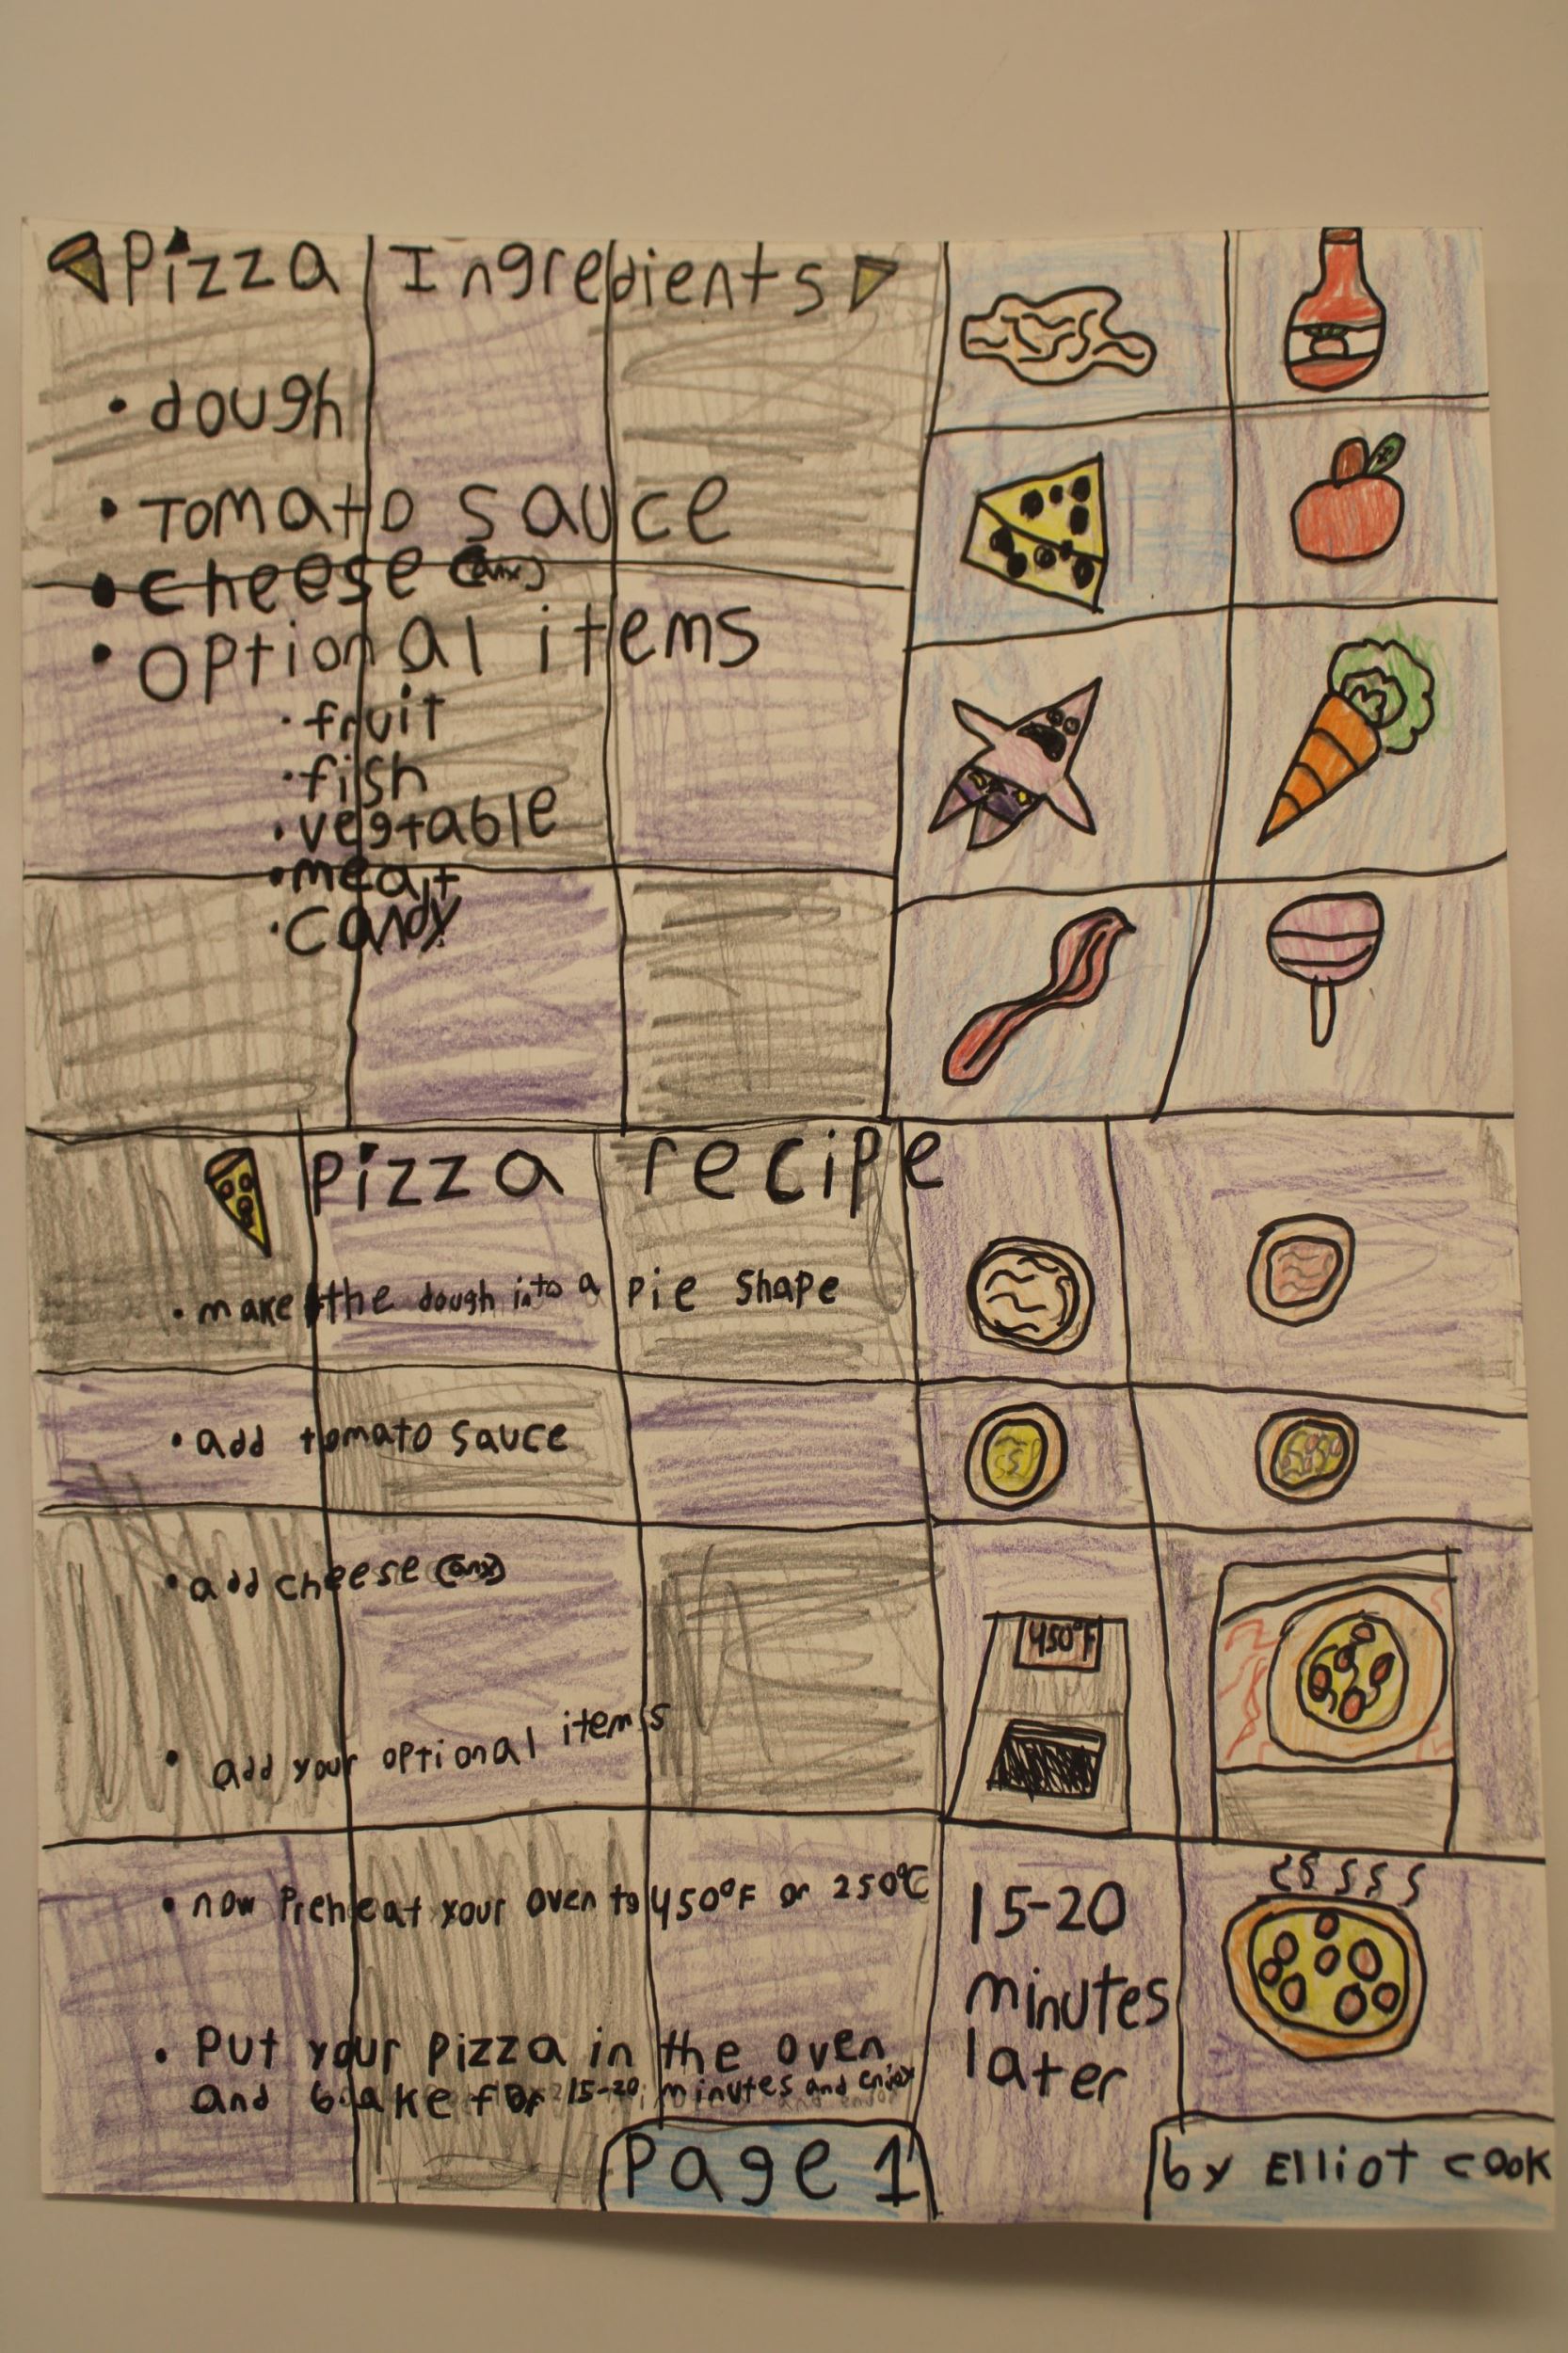 Pizza Ingredients
• dough
• Tomato sauce
• cheese (any)
• optional items
• fruit
• fish
• vegtable
• meat
• candy
Pizza recipe
• make the dough into a pie shape
• add tomato sauce
• add cheese (any)
• add your optional items
450°F
• now Preheat your oven to 450°F or 250°C
• Put your pizza in the oven
and bake for 15-20 minutes and enjoy
15-20
minutes
later
Page 1
by Elliot cook